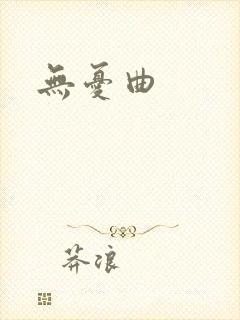 無憂曲
莽浪